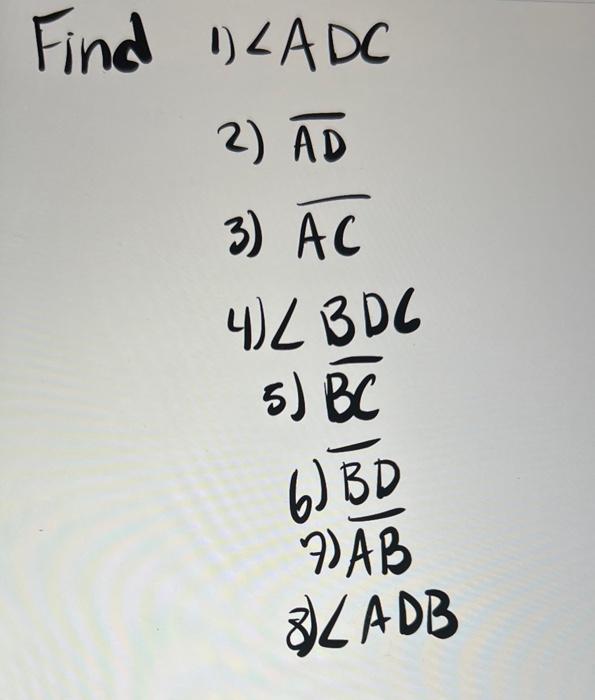 Find 1) ∠ADC
2) A̅D̅
3) A̅C̅
4) ∠BDC
5) B̅C̅
6) B̅D̅
7) A̅B̅
8) ∠ADB